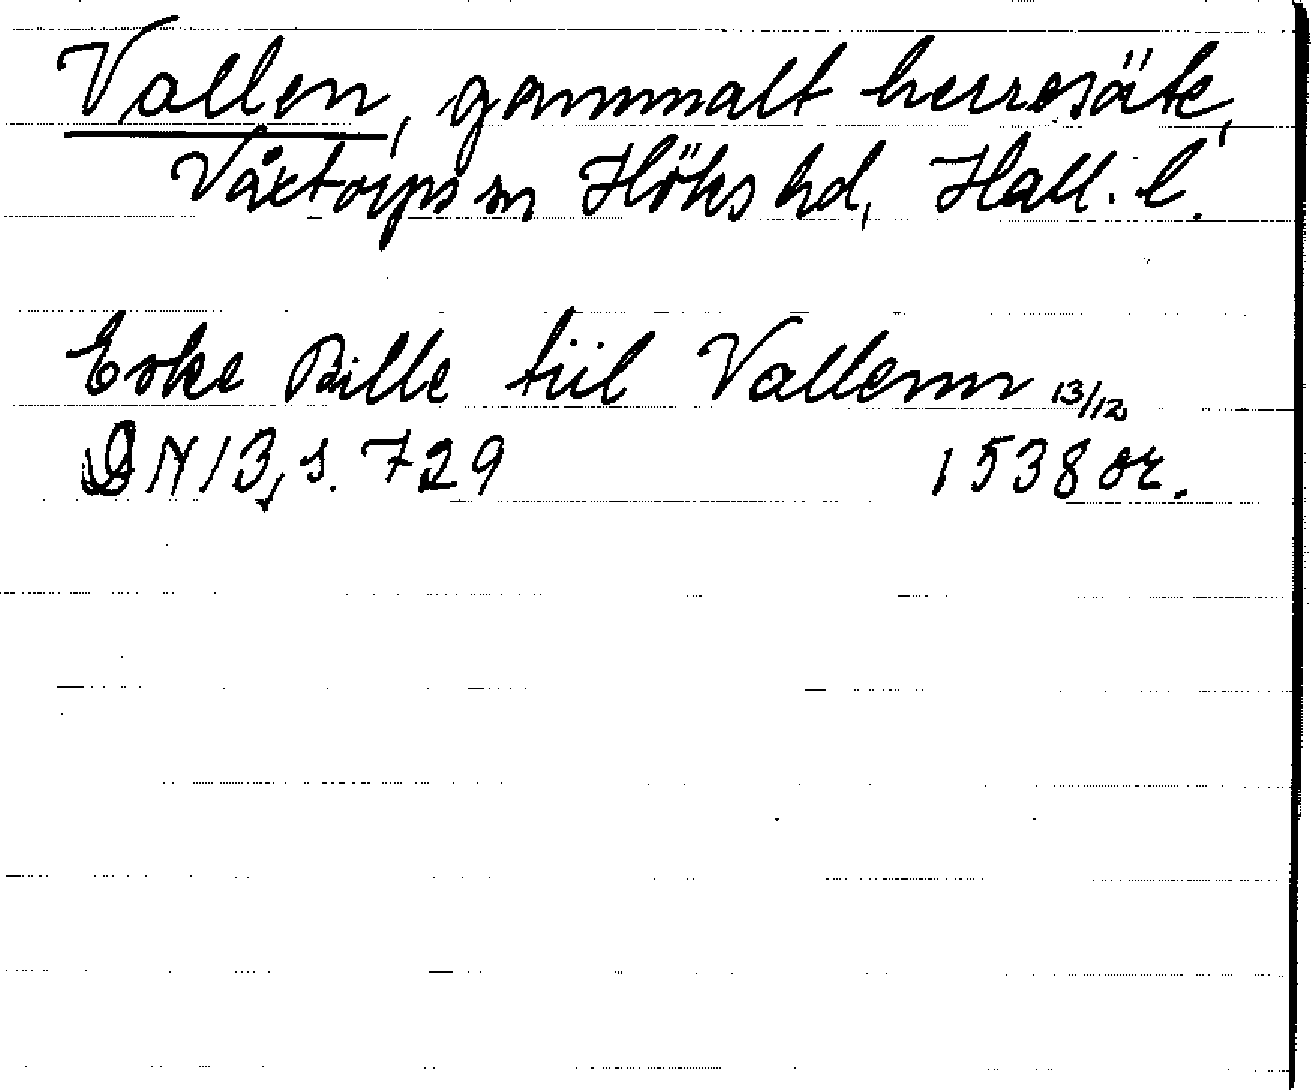 Vallen, gammalt herresäte,
Våxtorps sn Höks hd, Hall. l.
Eske Bille tiil Vallenn 13/12
DN 13, s. 729 1538 or.